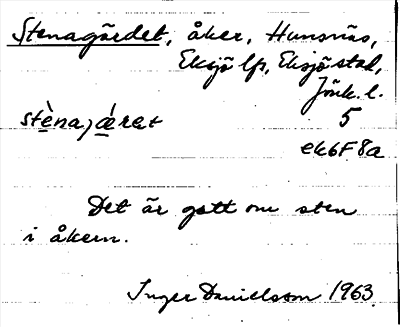 Stenagärdet, åker, Hunsnäs,
Eksjö lfs, Eksjö stad,
Jönk. l.
stènajǽret 5
ek6F8a
Det är gott om sten
i åkern.
Inger Danielsson 1963